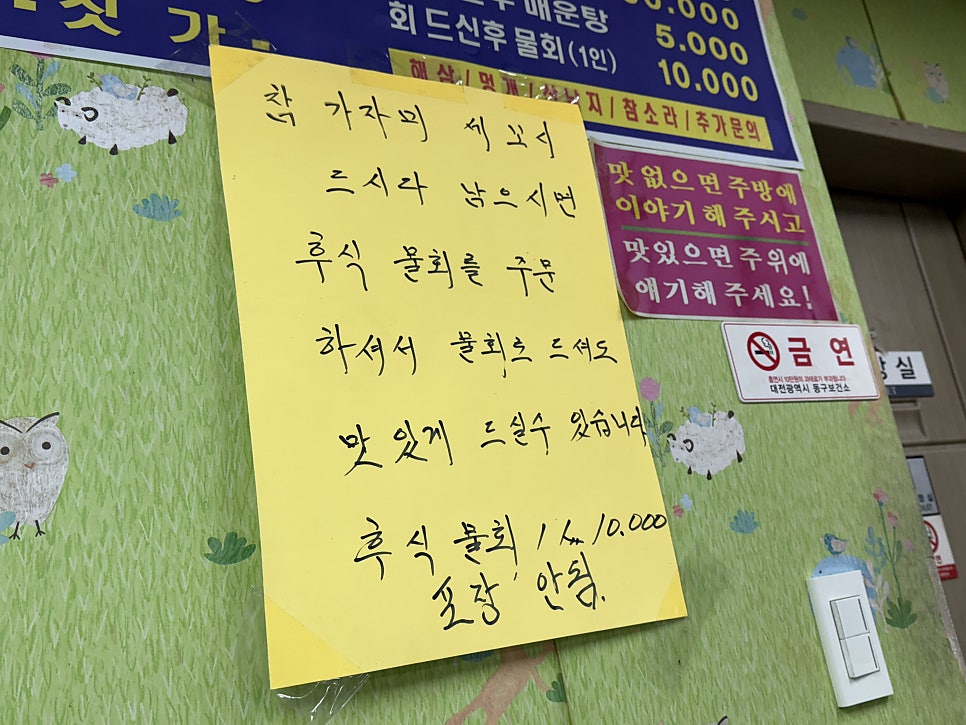 매운탕
5.000
회 드신후 물회(1인)
10.000
해삼/멍게/산낙지/참소라/추가문의
참 가자미 세꼬시
드시다 남으시면
후식 물회를 주문
하셔서 물회로 드셔도
맛있게 드실수 있습니다
후식 물회 1人 10.000
포장 안됨.
맛 없으면 주방에
이야기 해 주시고
맛있으면 주위에
얘기해 주세요!
금연
흡연시 10만원의 과태료가 부과됩니다
대전광역시 동구보건소
실